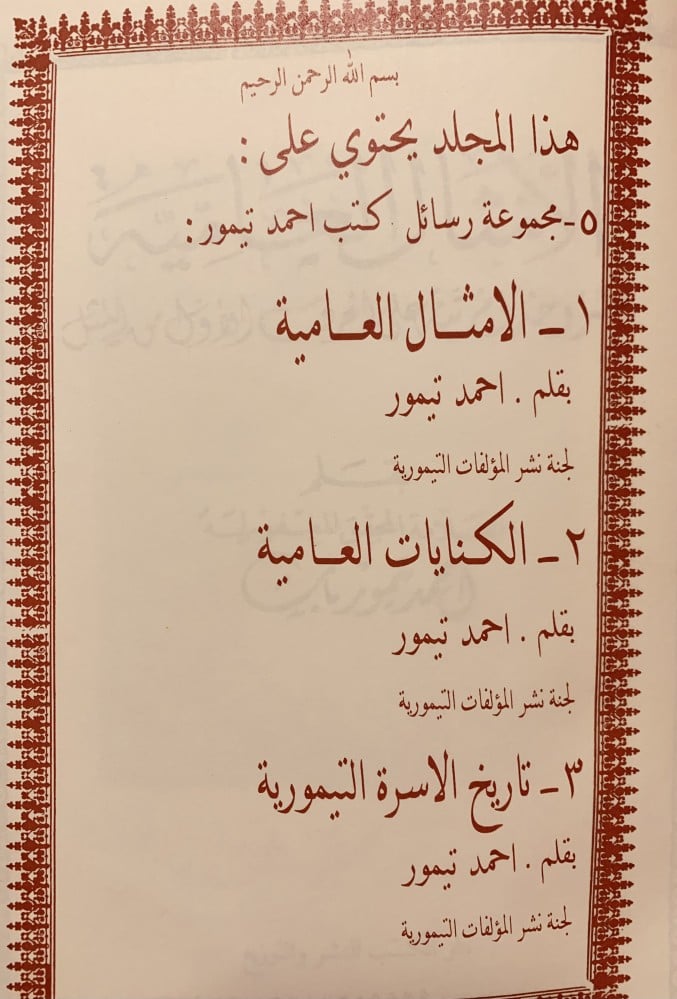 بسم الله الرحمن الرحيم
هذا المجلد يحتوي على :
٥- مجموعة رسائل كتب احمد تيمور :
١ - الامثال العامية
بقلم . احمد تيمور
لجنة نشر المؤلفات التيمورية
٢ - الكنايات العامية
بقلم . احمد تيمور
لجنة نشر المؤلفات التيمورية
٣ - تاريخ الاسرة التيمورية
بقلم . احمد تيمور
لجنة نشر المؤلفات التيمورية